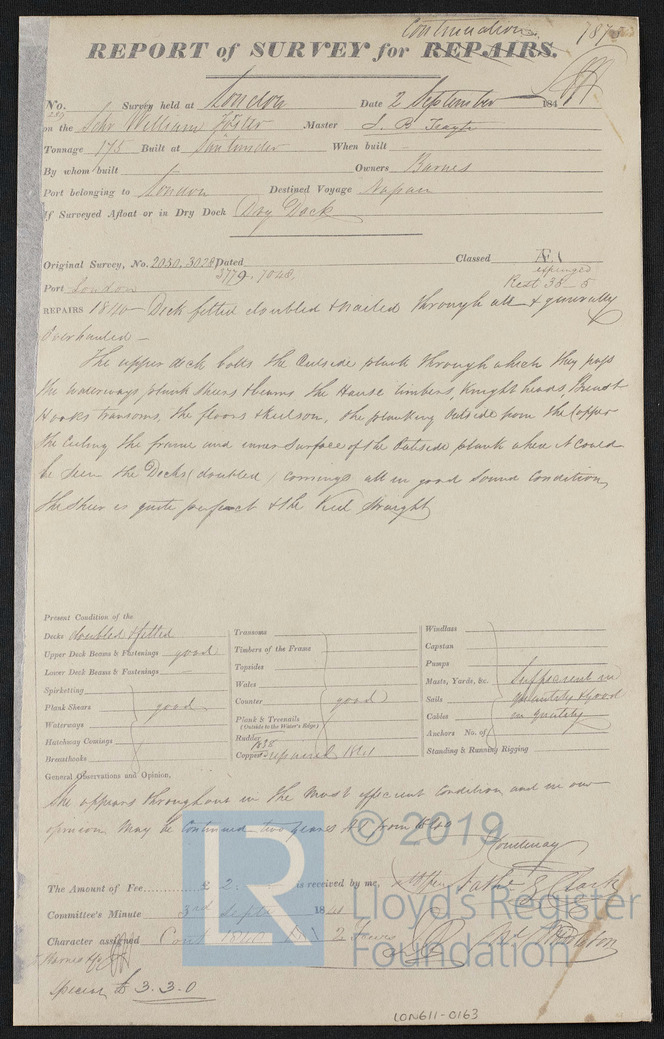 Continuation
REPORT of SURVEY for REPAIRS.
No. Survey held at London Date 2 September 184
on the Schr William Foster Master
Tonnage 175 Built at Santander When built
By whom built Owners Barnes
Port belonging to London Destined Voyage Napan
If Surveyed Afloat or in Dry Dock Dry Dock
Original Survey, No. 2030, 3028 Dated Classed Æ1
3779. 7048. expunged
Port London Rest 38-5
REPAIRS 1840 Deck fitted doubled & nailed through all & generally
Overhauled -
The upper deck bolts the Outside plank through which they pass
the waterways, plank sheers & beams the Hause timbers, Knight heads, Breast
Hooks transoms, the floors & keelson, the planking Outside from the Copper
the Ceiling the frame and inner Surface of the Outside plank when it could
be seen the Decks (doubled) comings all in good Sound Condition,
the Sheer is quite perfect & the Keel Straight
Present Condition of the
Decks doubled & fitted
Upper Deck Beams & Fastenings good
Lower Deck Beams & Fastenings
Spirketting
Plank Shears good
Waterways
Hatchway Comings
Breasthooks
Transoms
Timbers of the Frame
Topsides
Wales
Counter good
Plank & Treenails
(Outside to the Water's Edge)
Rudder
1838
Copper repaired
Windlass
Capstan
Pumps
Masts, Yards, &c. Sufficient in
Sails quantity & good
Cables in quality
Anchors No. of
Standing & Running Rigging
General Observations and Opinion,
She appears throughout in the most efficient condition and in our
opinion May be Continued two years A1 from 1840
Courtenay
The Amount of Fee £ 2. is received by me, Nathl G Clark
Committee's Minute 3rd Septr 1841
Character assigned Contd 1840 A1 2 Years
Special £ 3.3.0
LON611-0163
© 2019
LR
Lloyd's Register
Foundation